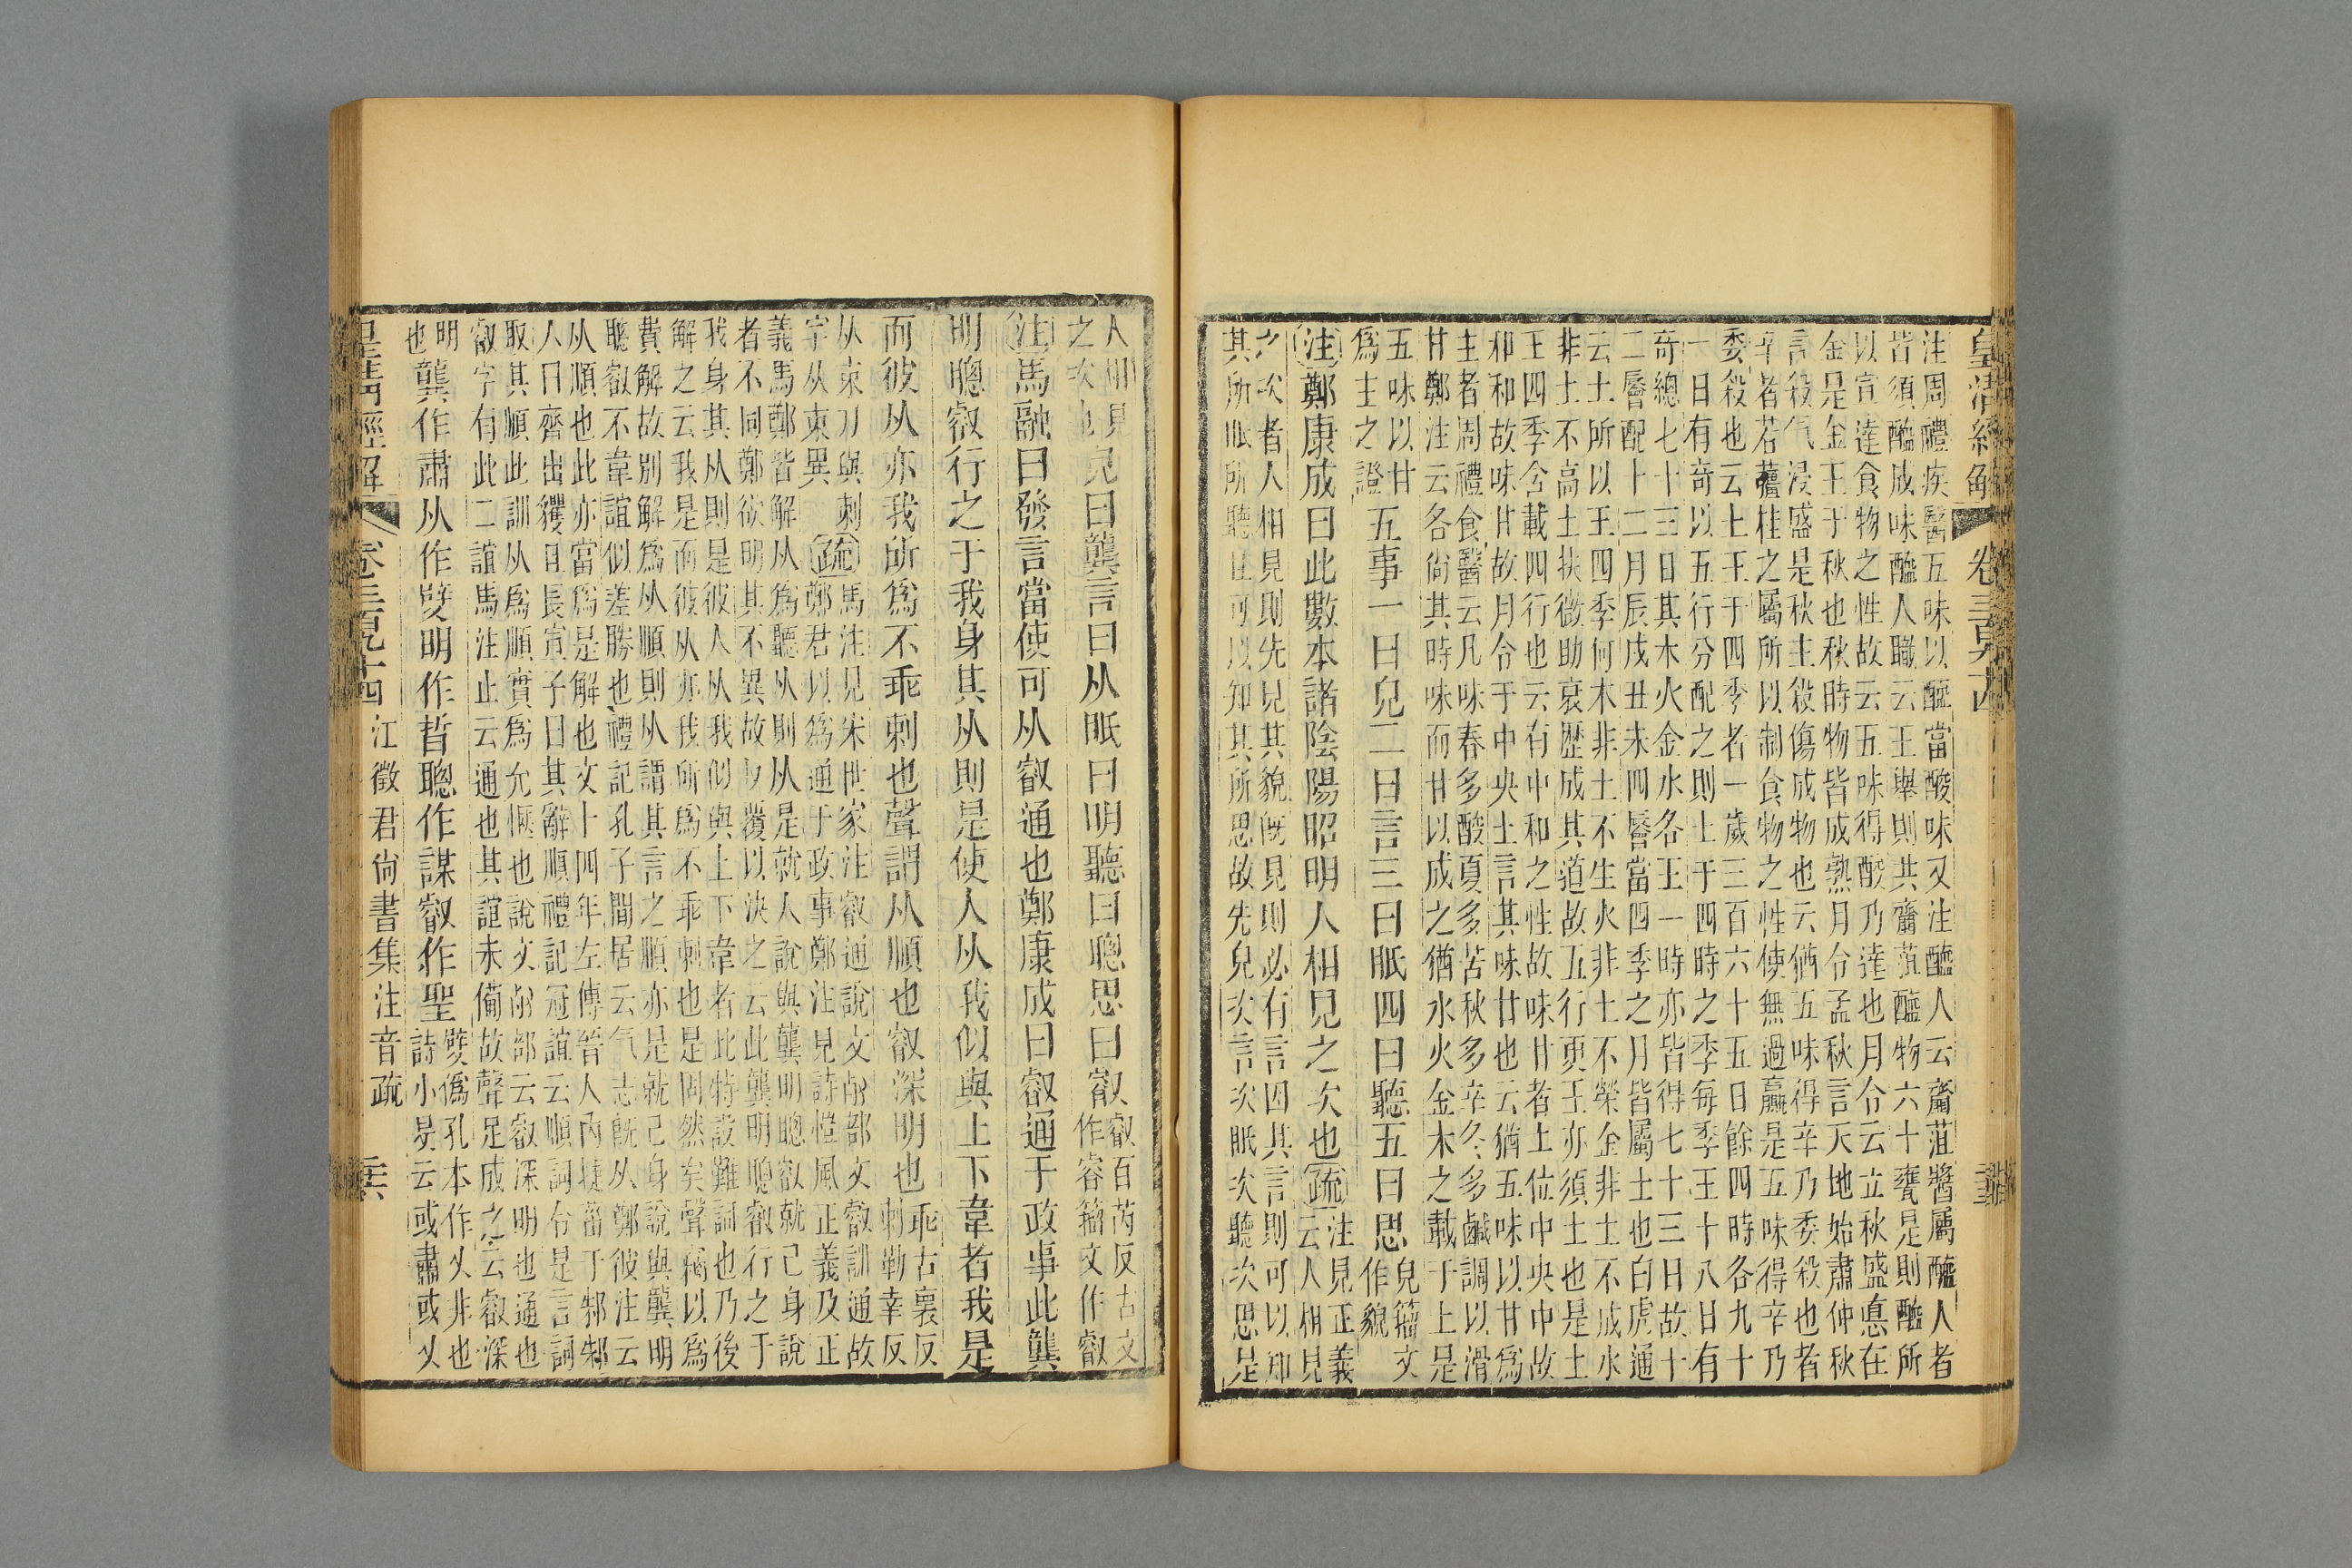 皇清經解 卷三百九十四
注周禮疾醫五味以醯當酸味又注醯人云齏菹醬屬醯人者
皆須醯成味醯人職云王舉則共齏菹醯物六十罋是則醯所
以宣達食物之性故云五味得酸乃達也月令云立秋盛悳在
金是金王于秋也秋時物皆成孰月令孟秋言天地始肅仲秋
言殺气浸盛是秋主殺傷成物也云猶五味得辛乃委殺也者
辛者若薑桂之屬所以制食物之性使無過贏是五味得辛乃
委殺也云土王于四季者一歲三百六十五日餘四時各九十
一日有奇以五行分配之則土于四時之季每季王十八日有
奇總七十三日其木火金水各王一時亦皆得七十三日故十
二層配十二月辰戌丑未四層當四季之月皆屬土也白虎通
云土所以王四季何木非土不生火非土不榮金非土不成水
非土不高土扶微助衰歷成其道故五行更王亦須土也是土
王四季含載四行也云有中和之性故味甘者土位中央中故
和和故味甘故月令于中央土言其味甘也云猶五味以甘爲
主者周禮食醫云凡味春多酸夏多苦秋多辛冬多鹹調以滑
甘鄭注云各尙其時味而甘以成之猶水火金木之載于上是
五味以甘
爲主之證
五事一曰皃二曰言三曰眡四曰聽五曰思
皃籀文
作貌
注鄭康成曰此數本諸陰陽昭明人相見之次也疏
注見正義
云人相見
之次者人相見則先見其貌旣見則必有言四其言則可以知
其所眡所聽且可以知其所思故先皃次言次眡次聽次思是
人相見
之次也
皃曰龔言曰从眡曰明聽曰聰思曰叡
叡百芮反古文
作睿籀文作叡
注馬融曰發言當使可从叡通也鄭康成曰叡通于政事此龔
明聰叡行之于我身其从則是使人从我似與上下韋者我是
而彼从亦我所爲不乖刺也聲謂从順也叡深明也
乖古裏反
刺勒幸反
从束刀與刺
字从東異
疏
馬注見宋世家注叡通說文㕡部文叡訓通故
鄭君以爲通于政事鄭注見詩愷風正義及正
義馬鄭皆解从爲聽从則从是就人說與龔明聰叡就己身說
者不同鄭欲明其不異故反覆以決之云此龔明聰叡行之于
我身其从則是彼人从我似與上下韋者此特設難詞也乃後
解之云我是而彼从亦我所爲不乖刺也是固然矣聲竊以爲
費解故別解爲从順則从謂其言之順亦是就己身說與龔明
聽叡不韋誼似差勝也禮記孔子閒居云气志旣从鄭彼注云
从順也此亦當爲是解也文十四年左傳晉人內捷菑于邾邾
人曰齊出貜且長宣子曰其辭順禮記冠誼云順詞令是言詞
取其順此訓从爲順實爲允愜也說文㕡部云叡深明也通也
叡字有此二誼馬注止云通也其誼未備故聲足成之云叡深
明
也
龔作肅从作㕥明作哲聰作謀叡作聖
㕥僞孔本作乂非也
詩小旻云或肅或乂
皇淸經解 卷三百九十四 江徵君尙書集注音疏